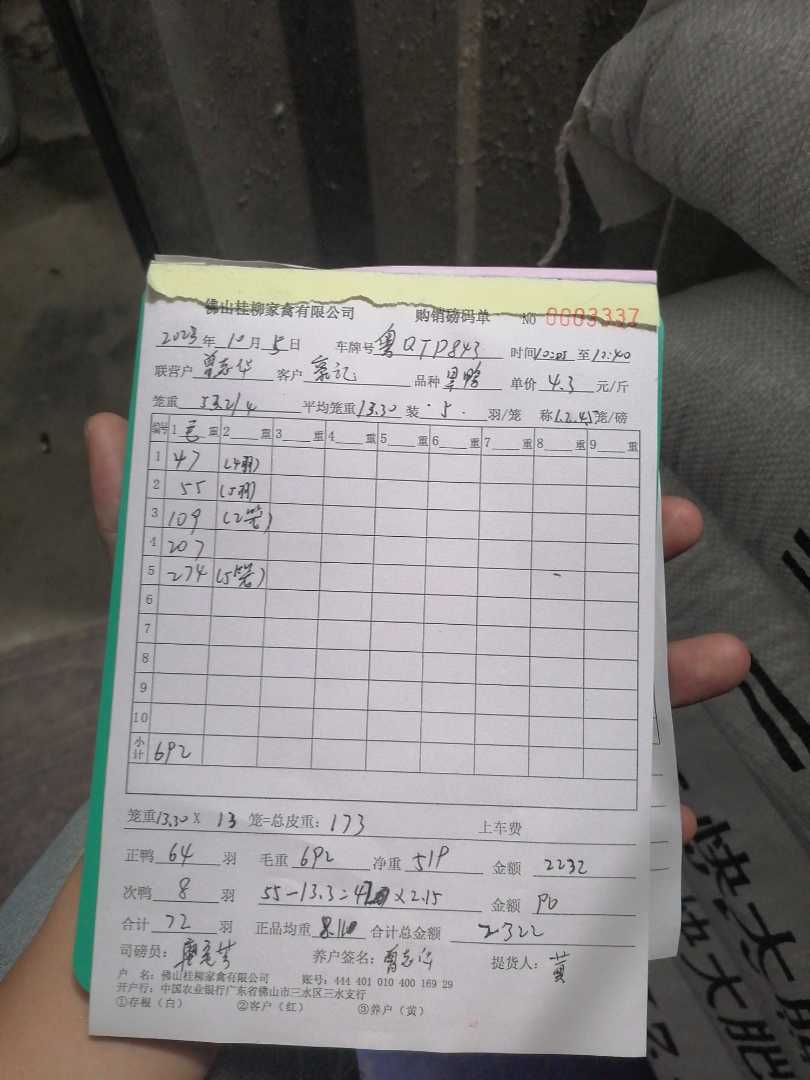 佛山桂柳家禽有限公司 购销磅码单 NO 0003337
2023年10月5日 车牌号粤QTP843 时间10:05至10:40
联营户曾志华 客户 记 品种 鸭 单价4.3元/斤
笼重53.2/4 平均笼重13.30装5羽/笼 称1.2.4.5笼/磅
编号 1毛重 2重 3重 4重 5重 6重 7重 8重 9重
1 47 (4羽)
2 55 (5羽)
3 109 (2笼)
4 207
5 274 (5笼)
6
7
8
9
10
小计 692
笼重13.30X13笼=总皮重:173 上车费
正鸭64羽 毛重692 净重519 金额2232
次鸭8羽 55-13.3=42×2.15 金额90
合计72羽 正品均重8.110 合计总金额2322
司磅员: 养户签名:曾志华 提货人:黄
户 名:佛山桂柳家禽有限公司 账号:444 401 010 400 169 29
开户行:中国农业银行广东省佛山市三水区三水支行
①存根(白) ②客户(红) ③养户(黄)
快大肥
快大肥